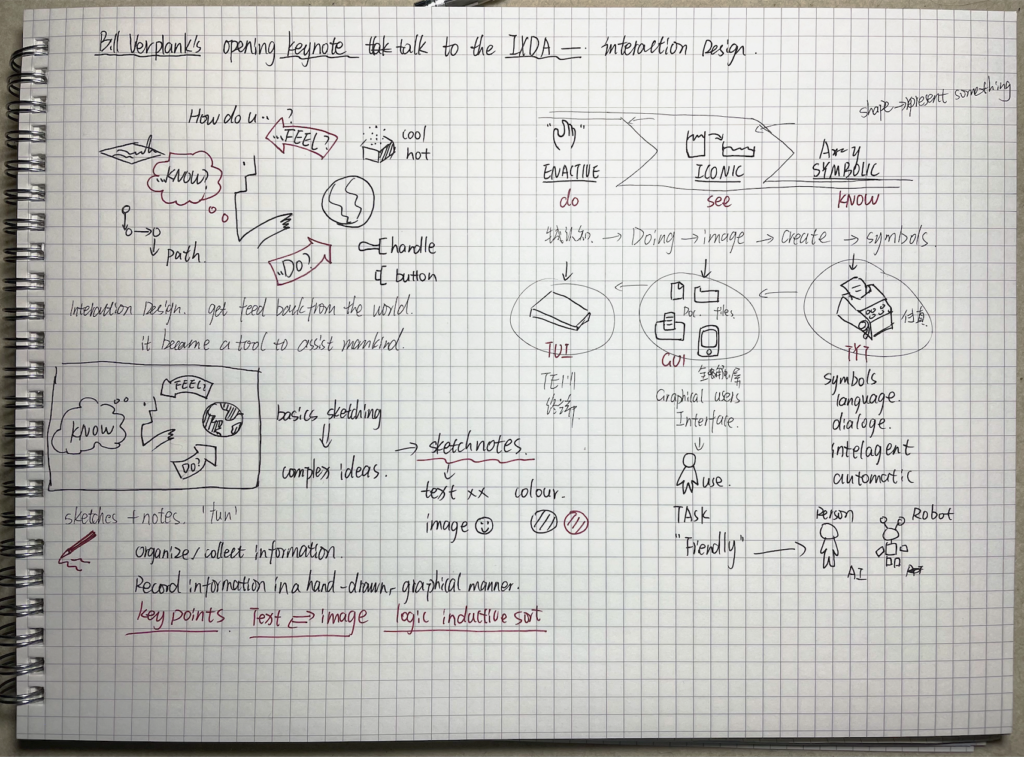 Bill Verplank's opening keynote talk to the IXDA — interaction Design.
How do u.. ?
...FEEL?
cool
hot
...KNOW?
path
...DO?
handle
button
Interaction Design. get feed back from the world.
it became a tool to assist mankind.
FEEL?
KNOW
DO?
basics sketching
complex ideas.
→ sketchnotes.
text xx colour.
image
sketches + notes. 'fun'
organize/collect information.
Record information in a hand-drawn, graphical manner.
key points Text ⇌ image logic inductive sort
shape → represent something
ENACTIVE
do
ICONIC
see
SYMBOLIC
KNOW
→ Doing → image → Create → symbols
TUI
终端
Doc. files
GUI
Graphical users
Interface.
use.
TAsk
"Friendly"
TXT
symbols
language.
dialoge.
intelagent
automatic
Person
AI
Robot